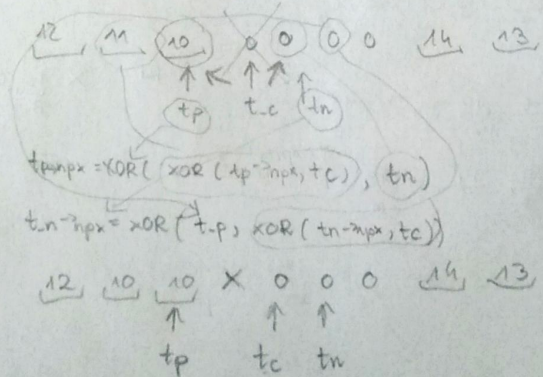 12 11 10 0 0 0 0 14 13
tp t_c tn
tp→npx = XOR( XOR( tp→npx, tc ) , tn )
t_n→npx = XOR( t_p, XOR( tn→npx, tc ) )
12 10 10 X 0 0 0 14 13
tp tc tn